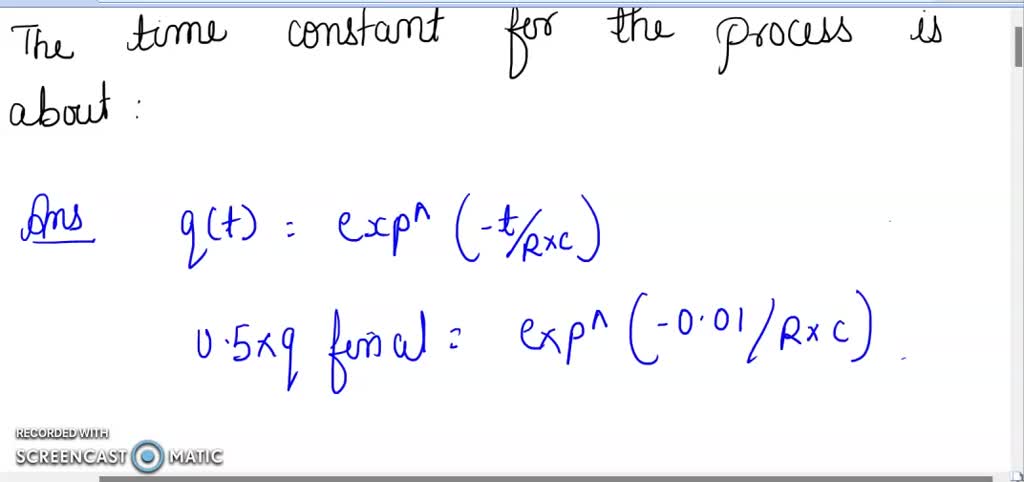 The time constant for the process is
about :
Ans q(t) = exp^ (-t/R×C)
0.5×q final = exp^ (-0.01/R×C)
RECORDED WITH
SCREENCAST MATIC